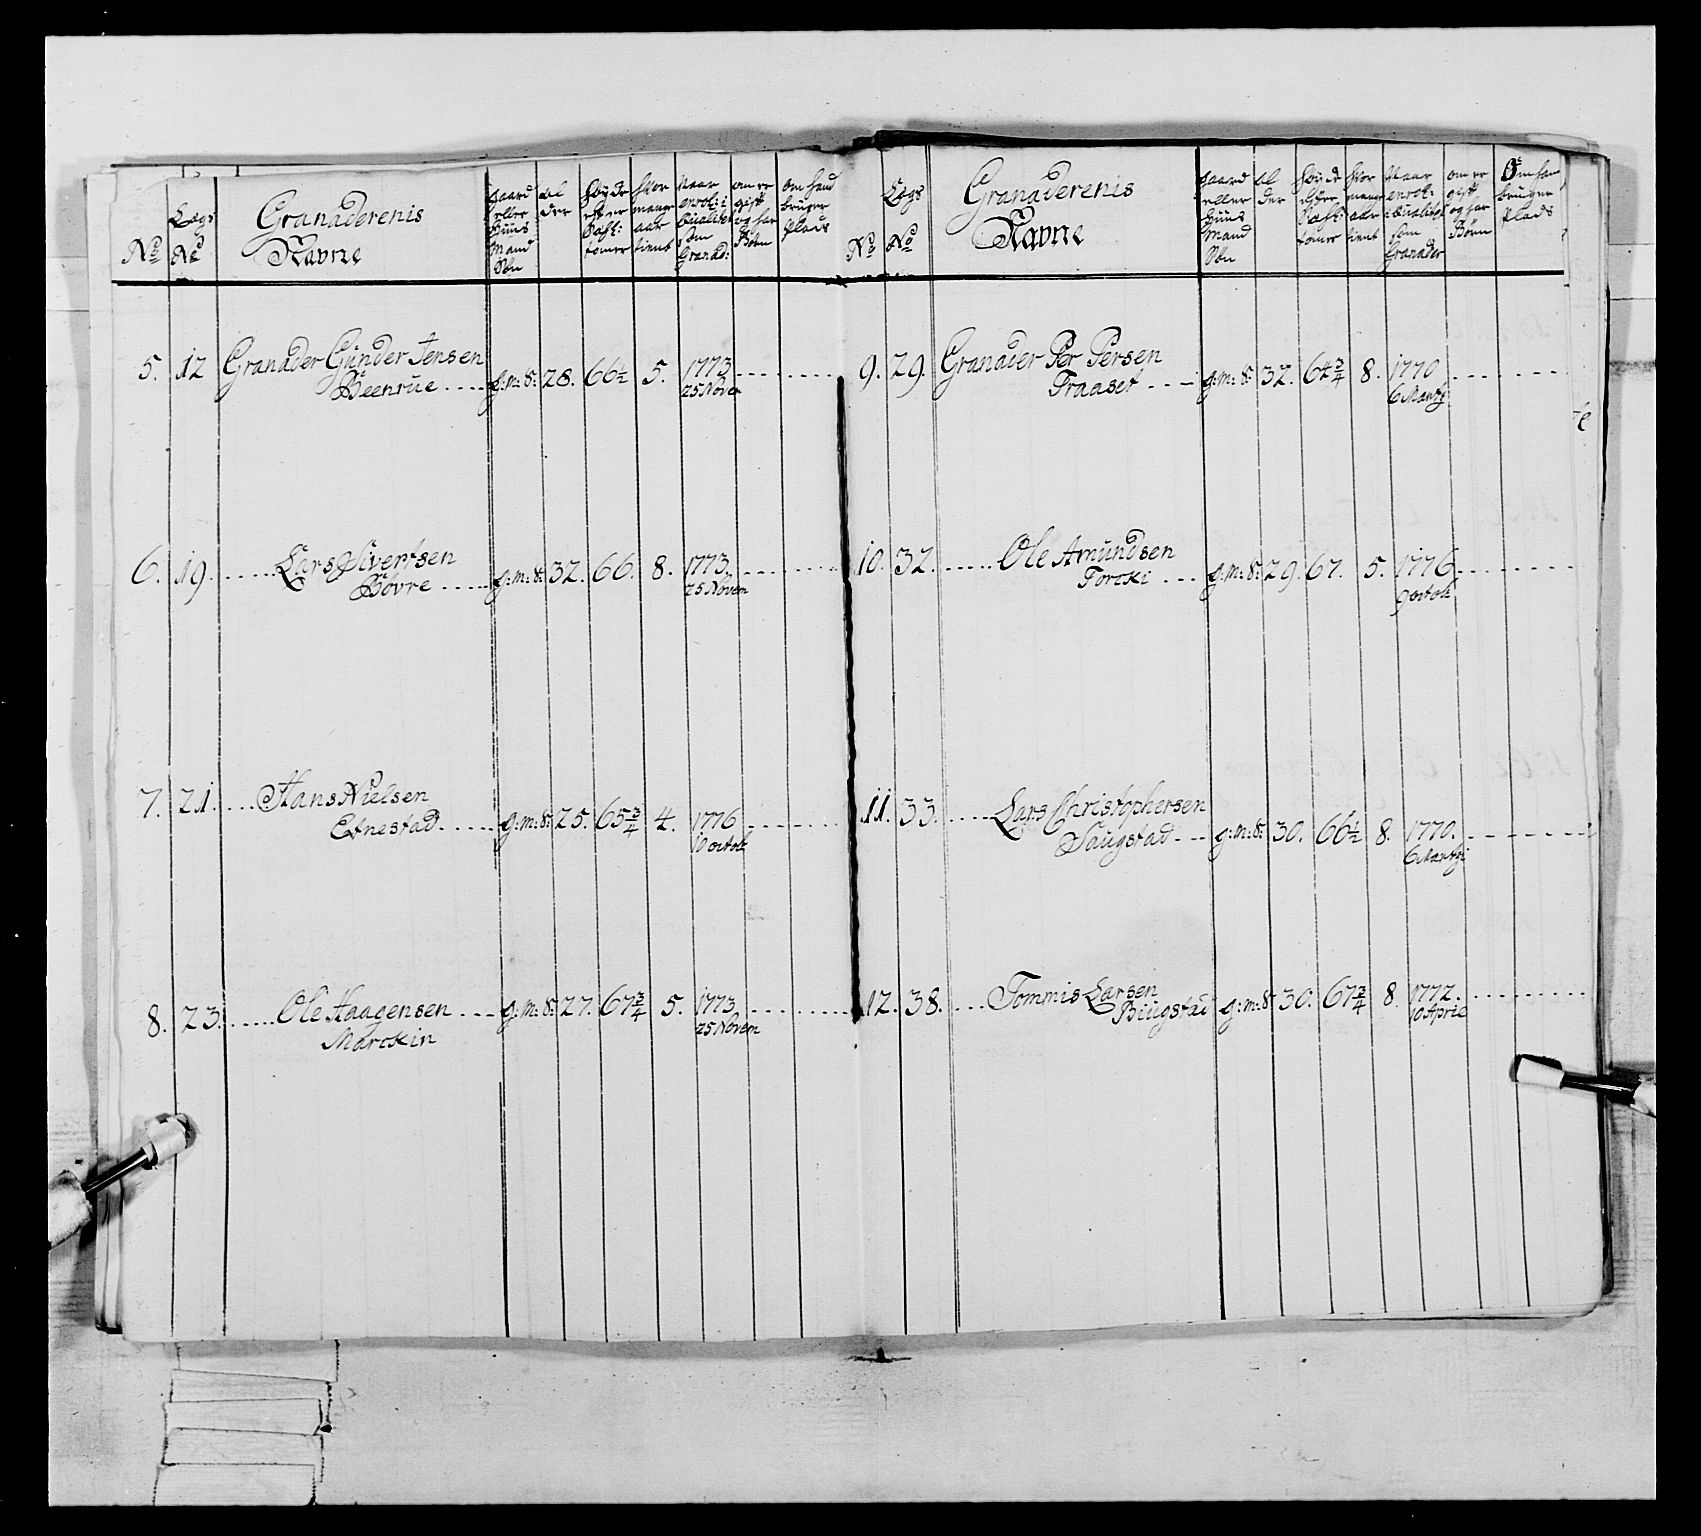 No
Lægs
No
Granaderenis
Navne
gaard
eller
Huus
Mand
Søn
al
der
Høyde
efter
Saft:
tomer
Hvor
mange
aar
tient
Naar
enrol: i
Qualitet
som
Granad:
om er
gift
og har
Børn
om hand
bruger
Plads
5. 12 Granader Gunder Jensen
Beenrue g:m:s: 28. 66½ 5. 1773
25 Novem
6. 19. Lars Sivertsen
Bøvre g:m:s: 32. 66. 8. 1773.
25 Novem
7. 21. Hans Nielsen
Etnestad g:m:s: 25. 65¾ 4. 1776
10 octob
8. 23. Ole Haagensen g:m:s: 27. 67¾ 5. 1773
Marckin 25 Novem
No
Lægs
No
Granaderenis
Navne
gaard
eller
Huus
Mand
Søn
al
der
Høyde
efter
Saft:
tomer
Hvor
mange
aar
tient
Naar
enrol:
i Qualitet
som
Granader
om er
gift
og har
Børn
Om han
bruger
Plads
9. 29. Granader Per Persen
Traaset g:m:s: 32. 64¾ 8. 1770
6 Martj
10. 32. Ole Amundsen
Torcki g:m:s: 29. 67. 5. 1776
9 octob
11. 33. Lars Christophersen
Saugstad g:m:s: 30. 66½ 8. 1770.
6 Martji
12. 38. Tommis Larsen
Biugstad g:m:s: 30. 67¾ 8. 1772.
10 April